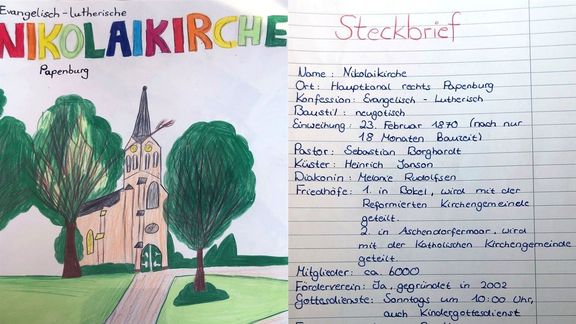 Evangelisch-Lutherische
NIKOLAIKIRCHE
Papenburg
Steckbrief
Name: Nikolaikirche
Ort: Hauptkanal rechts Papenburg
Konfession: Evangelisch-Lutherisch
Baustil: neugotisch
Einweihung: 23. Februar 1870 (nach nur
18 Monaten Bauzeit)
Pastor: Sebastian Borghardt
Küster: Heinrich Janson
Diakonin: Melanie Rudolfsen
Friedhöfe: 1. in Bokel, wird mit der
Reformierten Kirchengemeinde
geteilt.
2. in Aschendorfermoor, wird
mit der Katholischen Kirchengemeinde
geteilt.
Mitglieder: ca. 6000
Förderverein: Ja, gegründet in 2002
Gottesdienste: Sonntags um 10:00 Uhr,
auch Kindergottesdienst